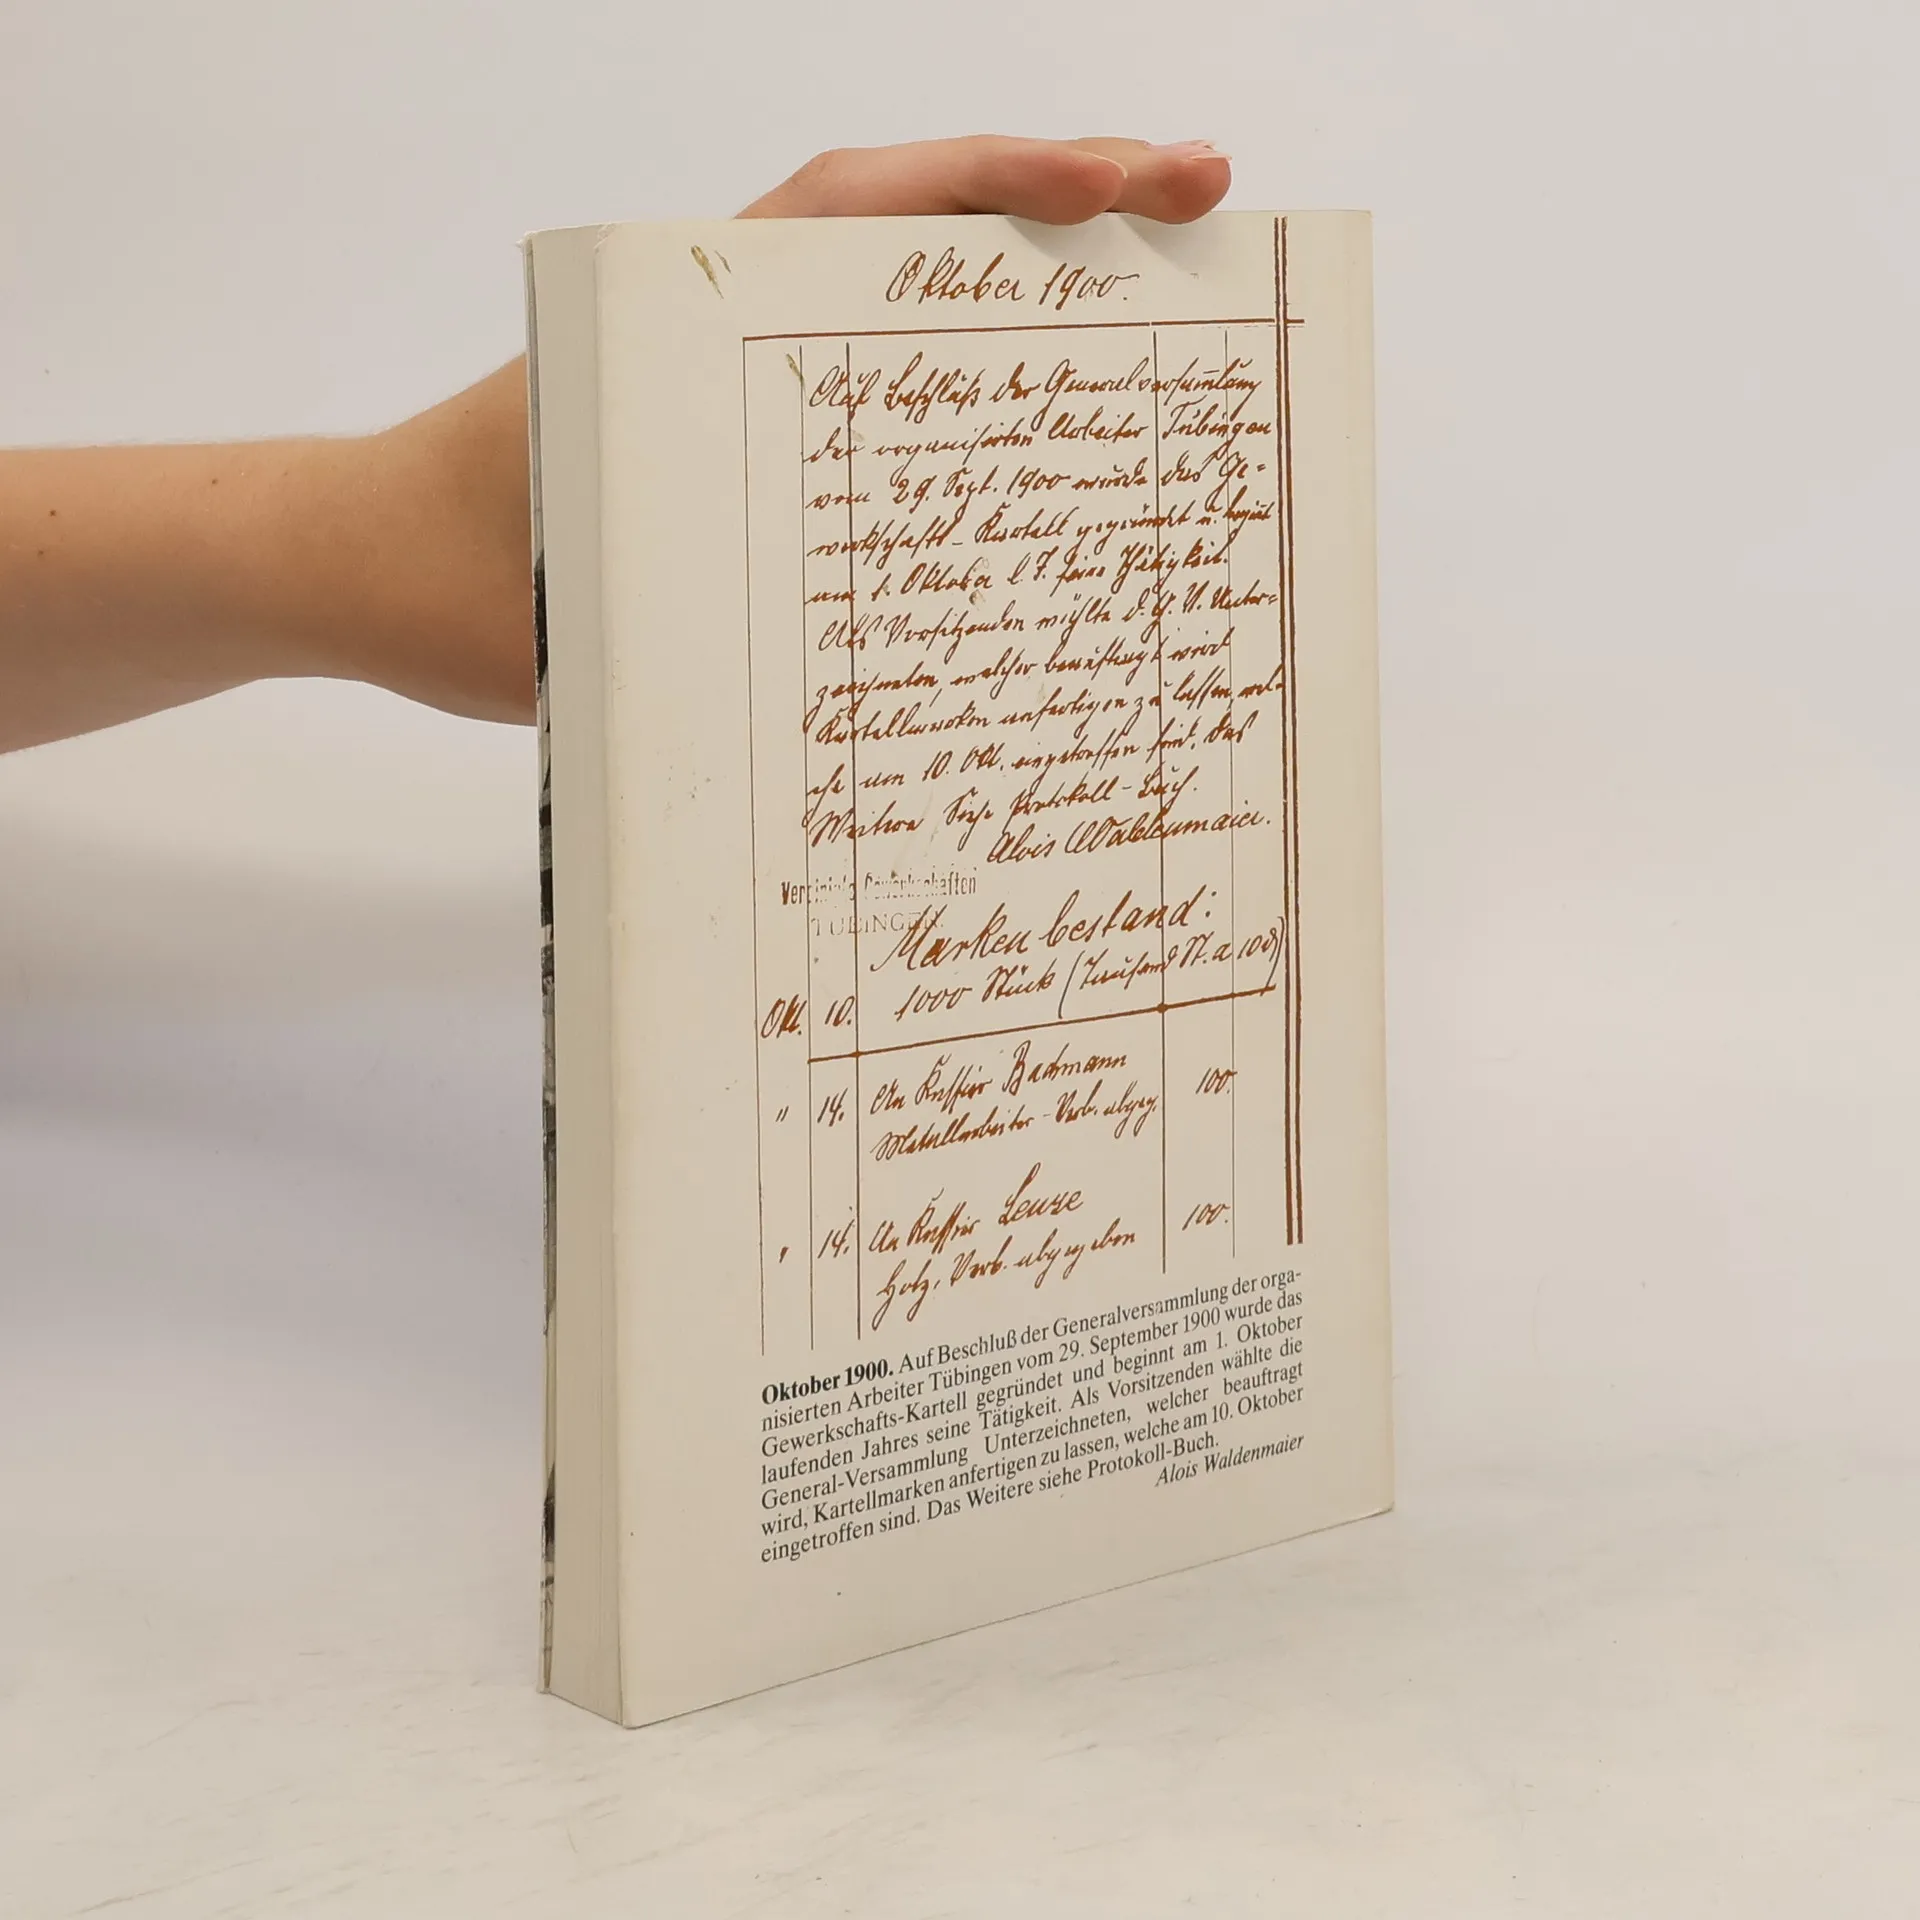 Oktober 1900.
Auf Beschluß der Generalversam̅lung
der organisirten Arbeiter Tübingen
vom 29. Sept. 1900 wurde das Ge=
werkschafts-Kartell gegründet u. begin̅t
am 1. Oktober l. J. seine Thätigkeit.
Als Vorsitzenden wählte d. G. V. Unter=
zeichneten, welcher beauftragt wird
Kartellmarken anfertigen zu lassen, wel-
che am 10. Okt. eingetroffen sind. Das
Weitere Siehe Protokoll-Buch.
Alois Waldenmaier.
Vereinigte Gewerkschaften
TÜBINGEN.
Markenbestand:
Okt. 10. 1000 Stück (Tausend St. a 10 ₰)
" 14. An Kassier Bachmann
Metallarbeiter-Verb. abgeg. 100.
" 14. An Kassier Leuze
Holz. Verb. abgegeben 100.
Oktober 1900. Auf Beschluß der Generalversammlung der orga-
nisierten Arbeiter Tübingen vom 29. September 1900 wurde das
Gewerkschafts-Kartell gegründet und beginnt am 1. Oktober
laufenden Jahres seine Tätigkeit. Als Vorsitzenden wählte die
General-Versammlung Unterzeichneten, welcher beauftragt
wird, Kartellmarken anfertigen zu lassen, welche am 10. Oktober
eingetroffen sind. Das Weitere siehe Protokoll-Buch.
Alois Waldenmaier